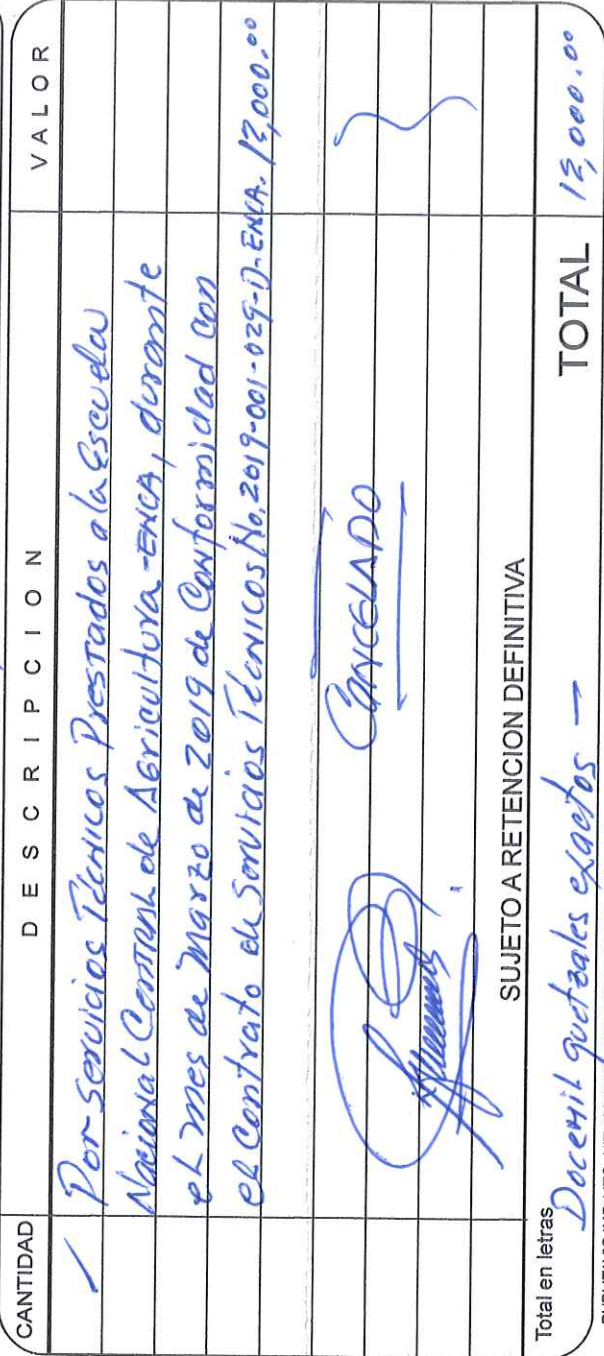 CANTIDAD DESCRIPCION VALOR
1 Por servicios Técnicos Prestados a la Escuela
Nacional Central de Agricultura -ENCA, durante
el mes de Marzo de 2019 de Conformidad con
el contrato de Servicios Técnicos No. 2019-001-029-D-ENCA. 12,000.00
CANCELADO
SUJETO A RETENCION DEFINITIVA
Total en letras
Docemil quetzales exactos — TOTAL 12,000.00